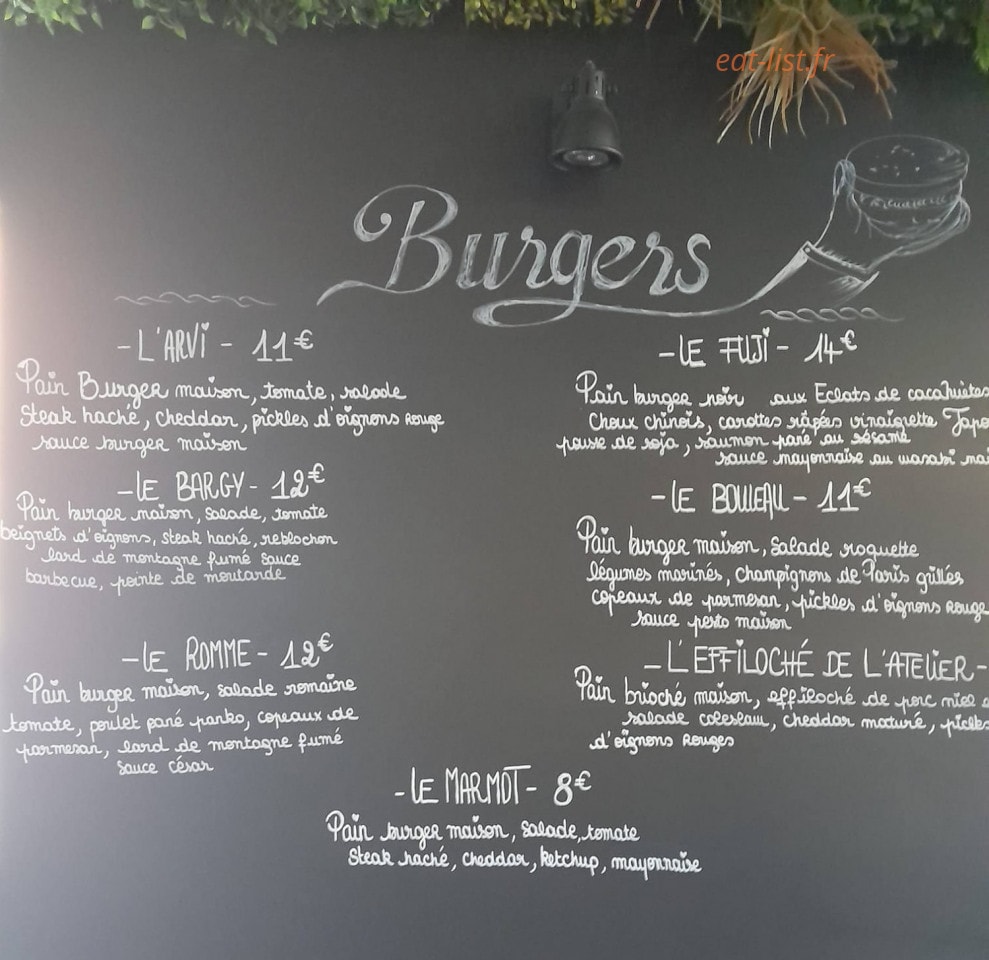 eat-list.fr
Burgers
-L'ARVI - 11€
Pain Burger maison, tomate, salade
Steak haché, cheddar, pickles d'oignons rouge
sauce burger maison
-LE BARGY- 12€
Pain burger maison, salade, tomate
beignets d'oignons, steak haché, reblochon
lard de montagne fumé sauce
barbecue, pointe de moutarde
-LE ROMME- 12€
Pain burger maison, salade romaine
tomate, poulet pané panko, copeaux de
parmesan, lard de montagne fumé
sauce césar
-LE FUJI- 14€
Pain burger noir aux Eclats de cacahuètes
Choux chinois, carottes râpées vinaigrette
pousse de soja, saumon pané au sésame
sauce mayonnaise au wasabi
-LE BOULEAU- 11€
Pain burger maison, Salade roquette
légumes marinés, champignons de Paris grillés
copeaux de parmesan, pickles d'oignons Rouge
sauce pesto maison
-L'EFFILOCHÉ DE L'ATELIER-
Pain brioché maison, effiloché de porc miel
salade coleslaw, cheddar maturé,
d'oignons Rouges
-LE MARMOT- 8€
Pain burger maison, salade, tomate
Steak haché, cheddar, ketchup, mayonnaise